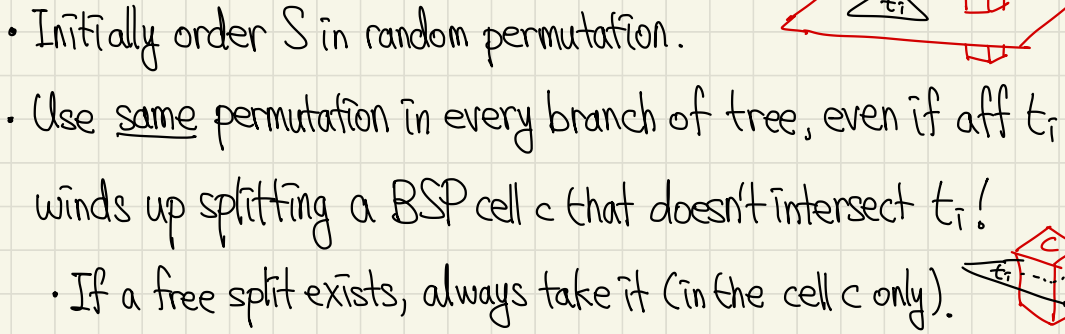 tᵢ
• Initially order S in random permutation.
• Use same permutation in every branch of tree, even if aff tᵢ
winds up splitting a BSP cell c that doesn't intersect tᵢ!
• If a free split exists, always take it (in the cell c only).
c
tᵢ